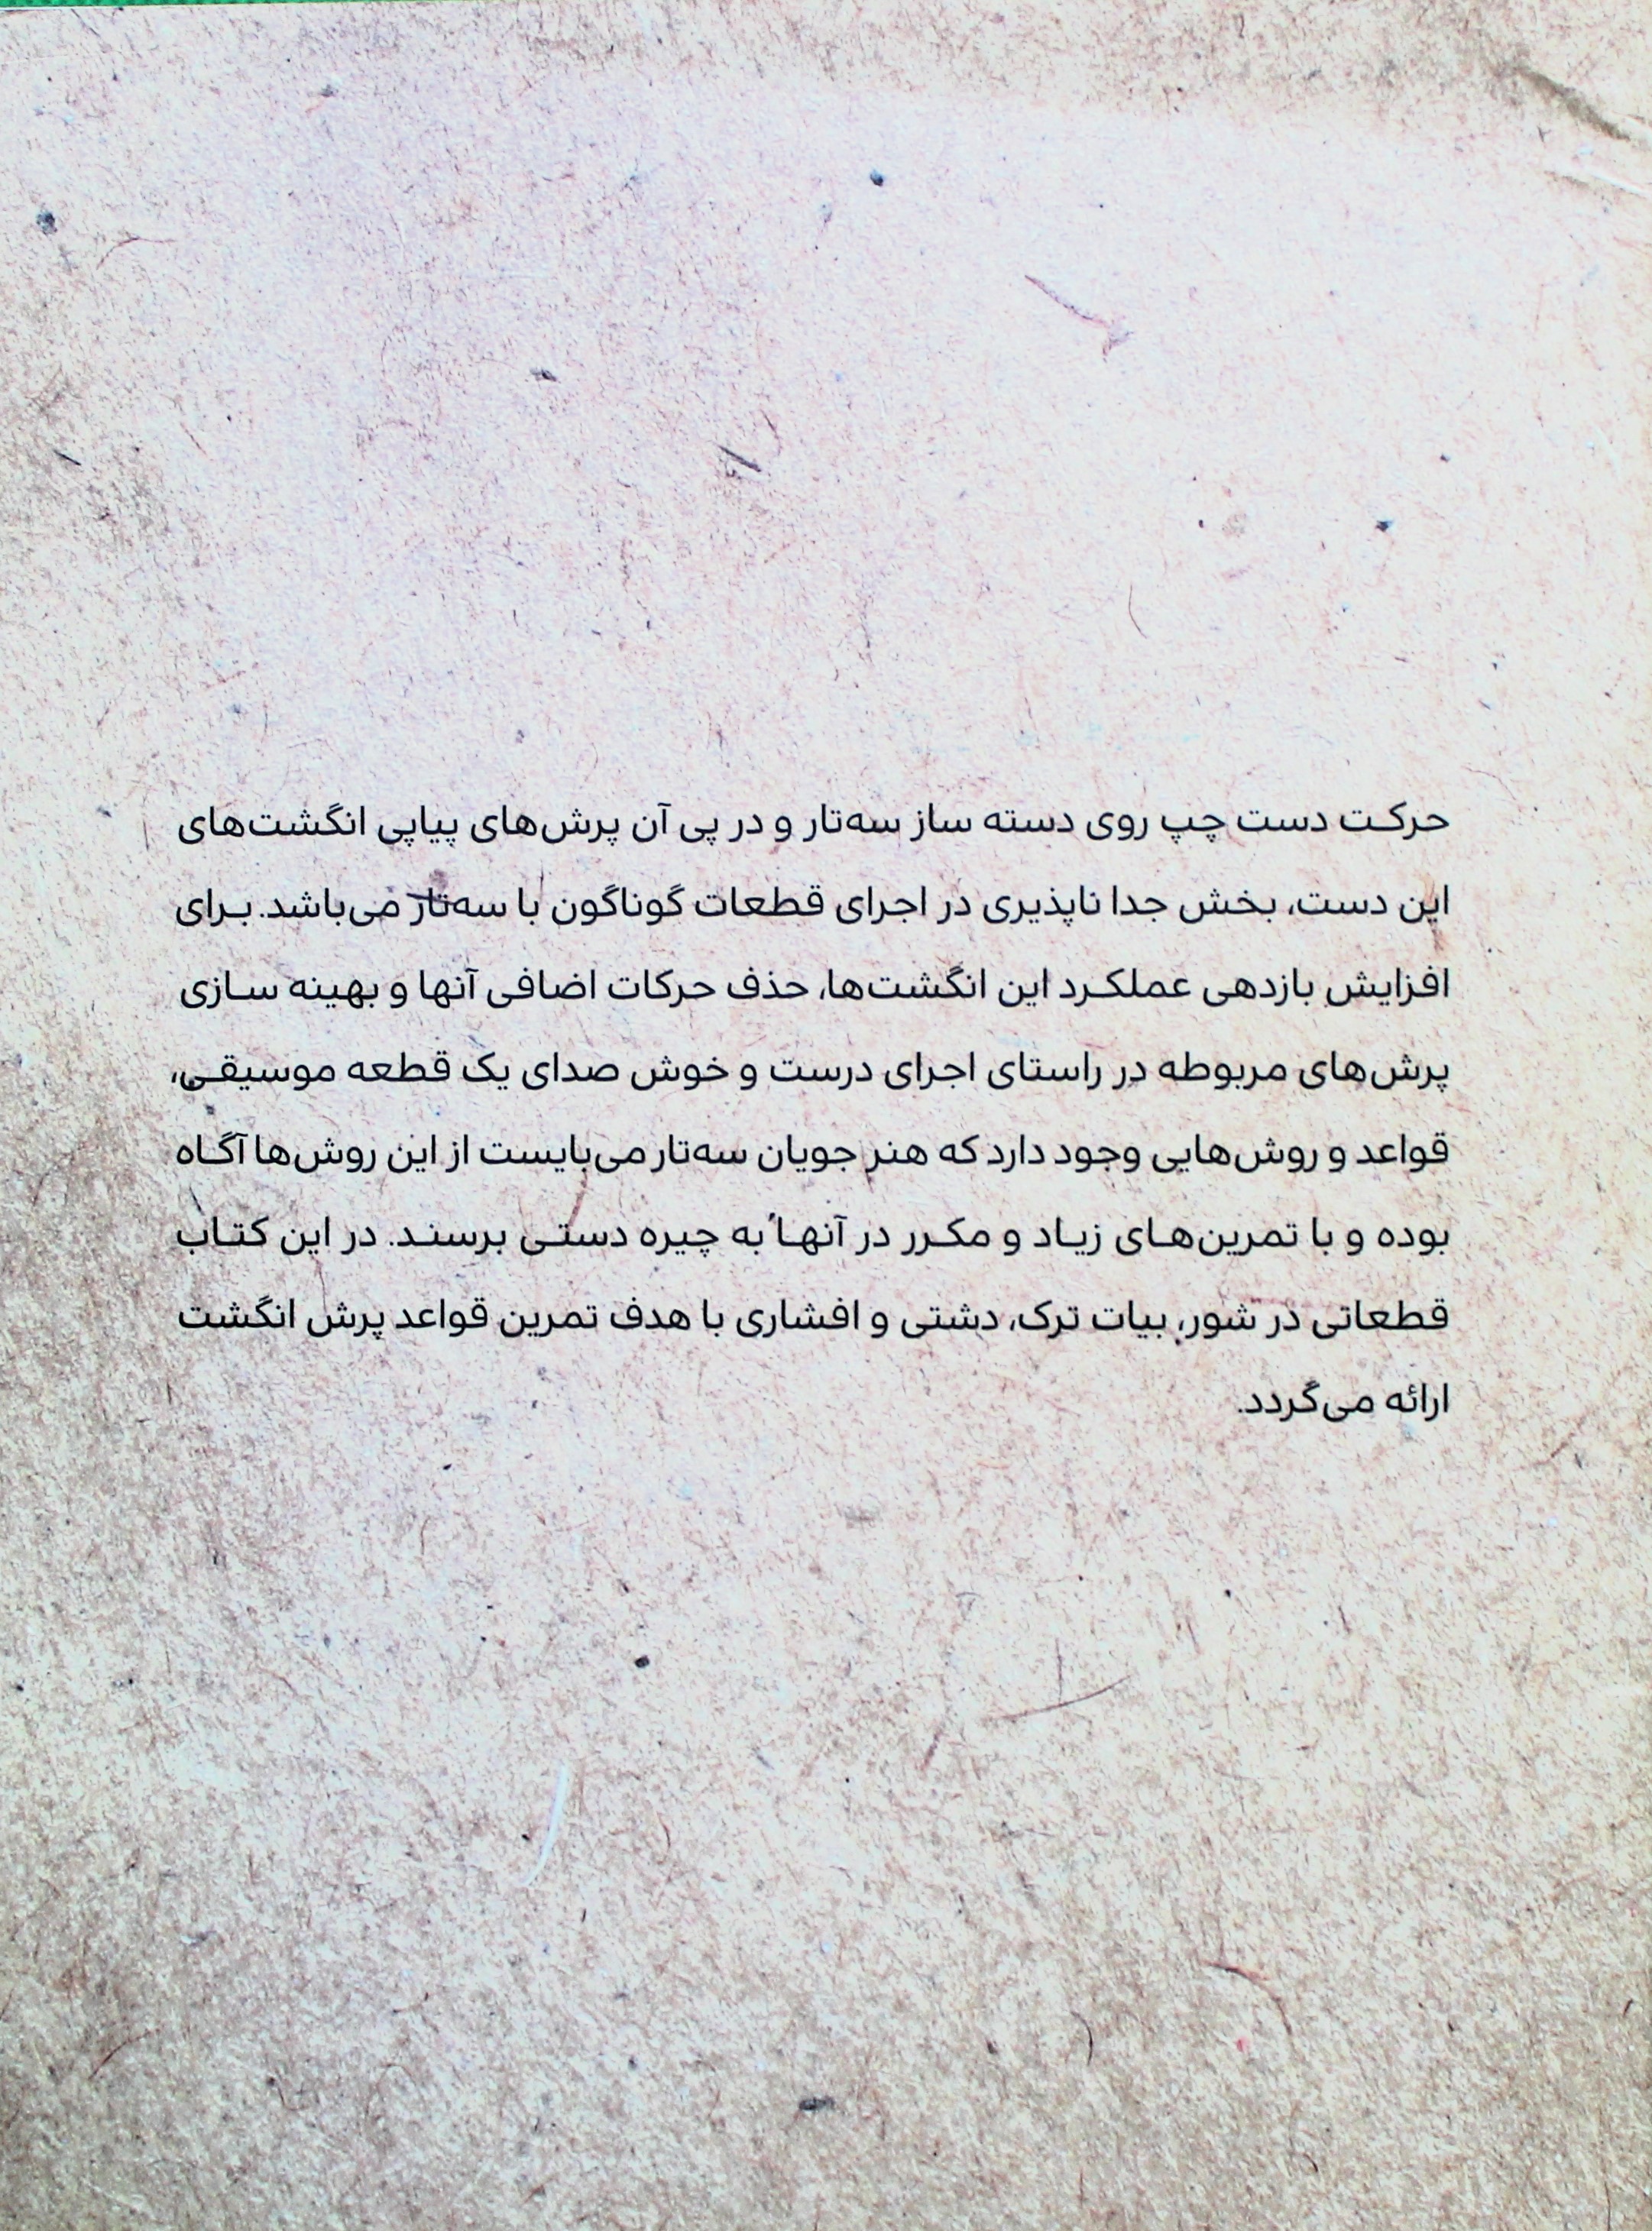 حرکت دست چپ روی دسته ساز سه‌تار و در پی آن پرش‌های پیاپی انگشت‌های
این دست، بخش جدا ناپذیری در اجرای قطعات گوناگون با سه‌تار می‌باشد. برای
افزایش بازدهی عملکرد این انگشت‌ها، حذف حرکات اضافی آنها و بهینه سازی
پرش‌های مربوطه در راستای اجرای درست و خوش صدای یک قطعه موسیقی،
قواعد و روش‌هایی وجود دارد که هنر جویان سه‌تار می‌بایست از این روش‌ها آگاه
بوده و با تمرین‌های زیاد و مکرر در آنها به چیره دستی برسند. در این کتاب
قطعاتی در شور، بیات ترک، دشتی و افشاری با هدف تمرین قواعد پرش انگشت
ارائه می‌گردد.